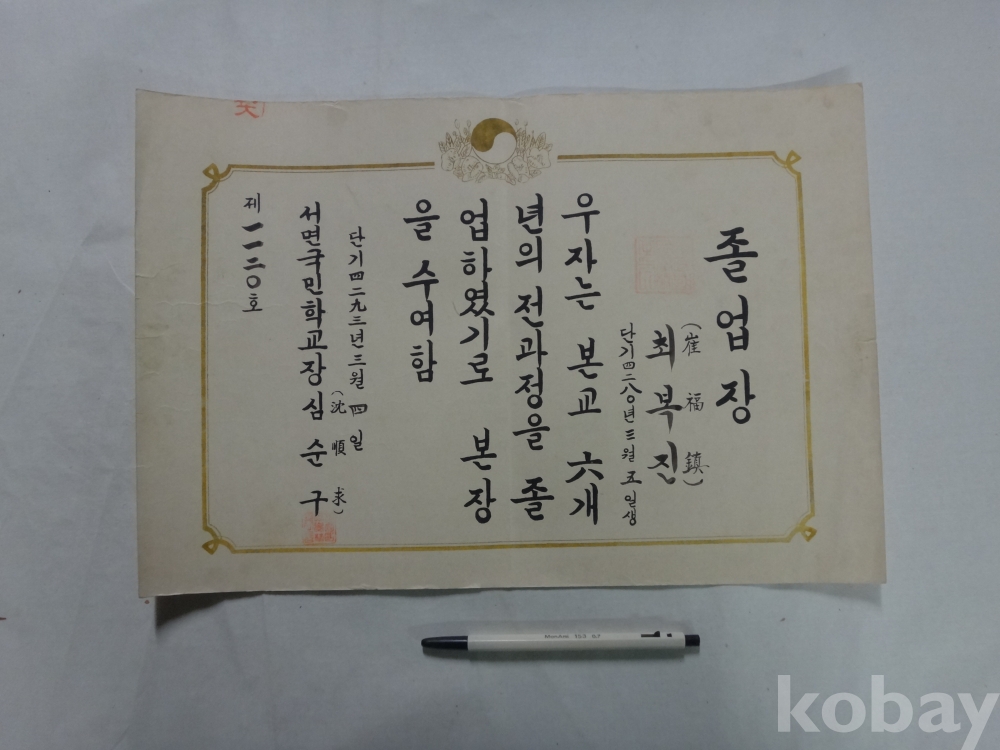 졸업장
(崔福鎭)
최복진
단기四二八〇년三월五일생
우자는 본교 六개
년의 전과정을 졸
업하였기로 본장
을 수여함
단기四二九三년三월四일
(沈順求)
서면국민학교장 심순구
제一一二〇호
kobay